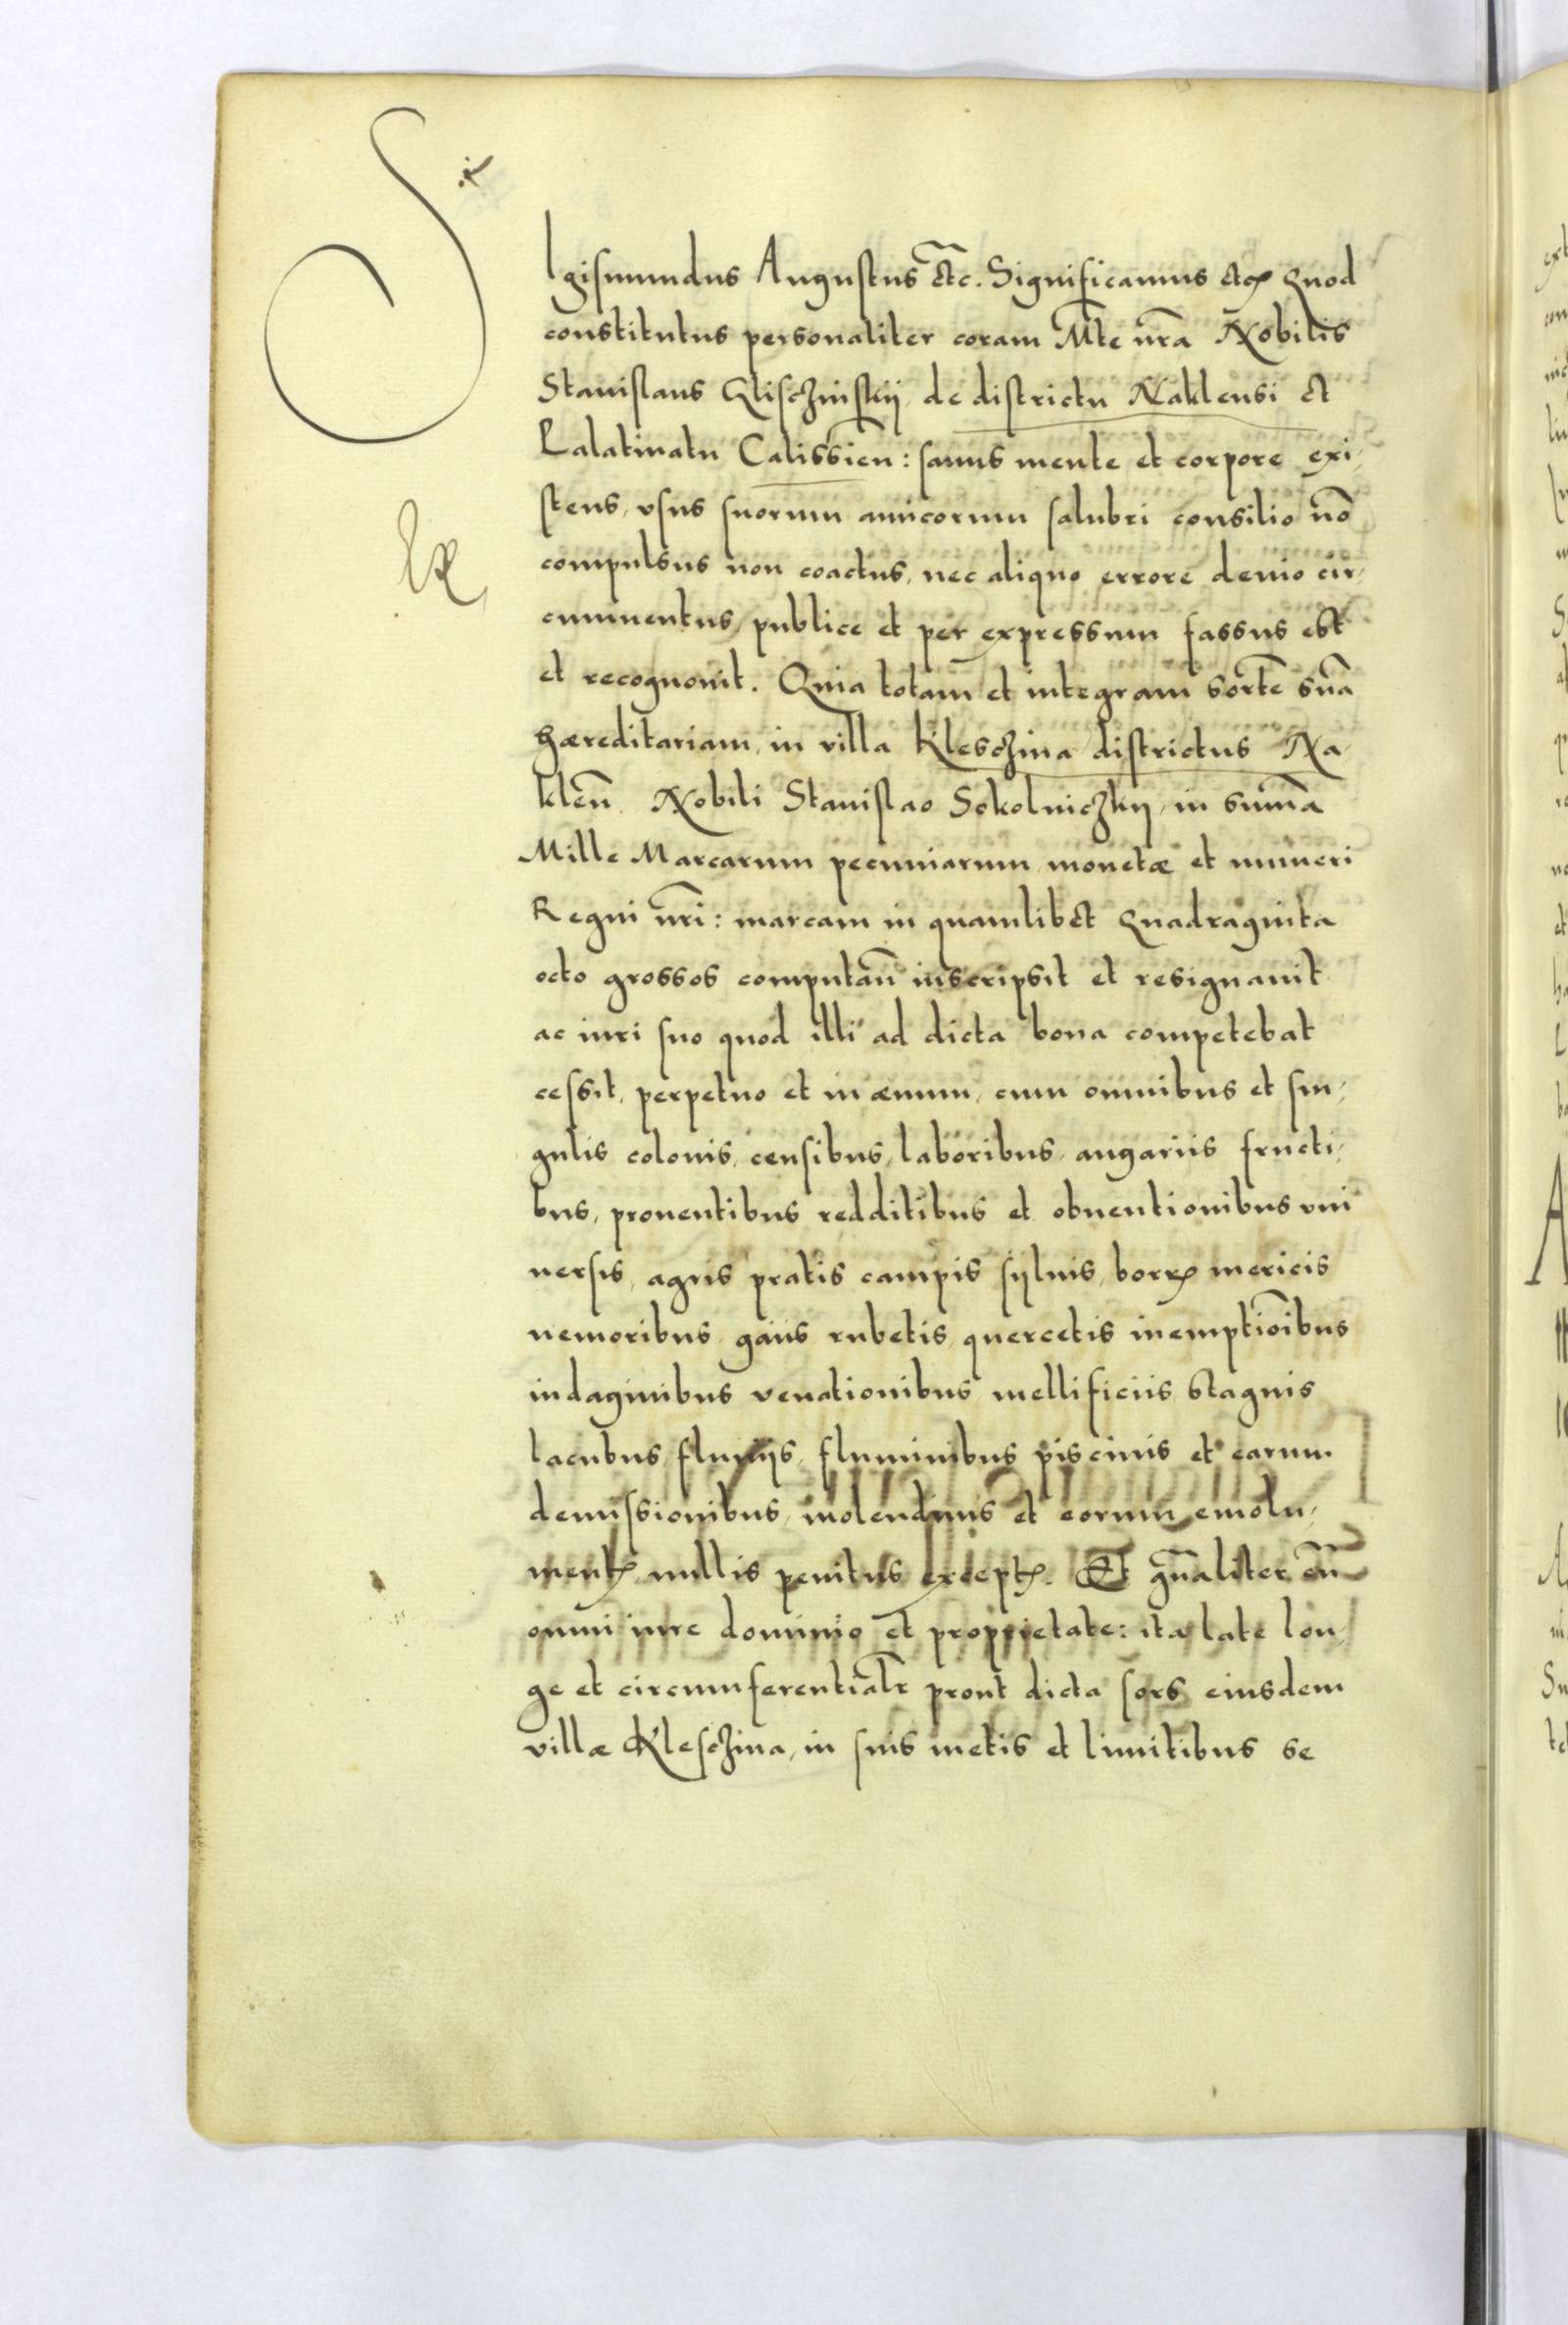 SIgismundus Augustus etc. Significamus etc. Quod
constitutus personaliter coram Mte nra Nobilis
Stanislaus Glisczinskij de districtu Naklensi et
Palatinatu Calissien: sanus mente et corpore exi-
stens, usus suorum amicorum salubri consilio no
compulsus non coactus, nec aliquo errore devio cir-
cumuentus, publice et per expressum fassus est
et recognouit. Quia totam et integram sorte sua
hæreditariam, in villa Klesczina districtus Na-
klen Nobili Stanislao Sokolniczkij, in summa
Mille Marcarum pecuniarum monetæ et numeri
Regni nri: marcam in quamlibet Quadraginta
octo grossos computan inscripsit et resignauit
ac iuri suo quod illi ad dicta bona competebat
cessit, perpetuo et in æuum, cum omnibus et sin-
gulis colonis, censibus, laboribus, angariis fructi-
bus, prouentibus redditibus et obuentionibus vni
uersis, agris pratis campis syluis, borris mericis
nemoribus gaiis rubetis quercetis inemptioibus
indaginibus venationibus mellificiis stagnis
lacubus fluuijs, fluminibus piscinis et earum
demissionibus, molendinis et eorum emolu-
mentis nullis penitus exceptis. Et gnaliter cu
omni iure dominio et proprietate: ita late lon-
ge et circumferentialr prout dicta sors eiusdem
villæ Klesczina, in suis metis et limitibus se